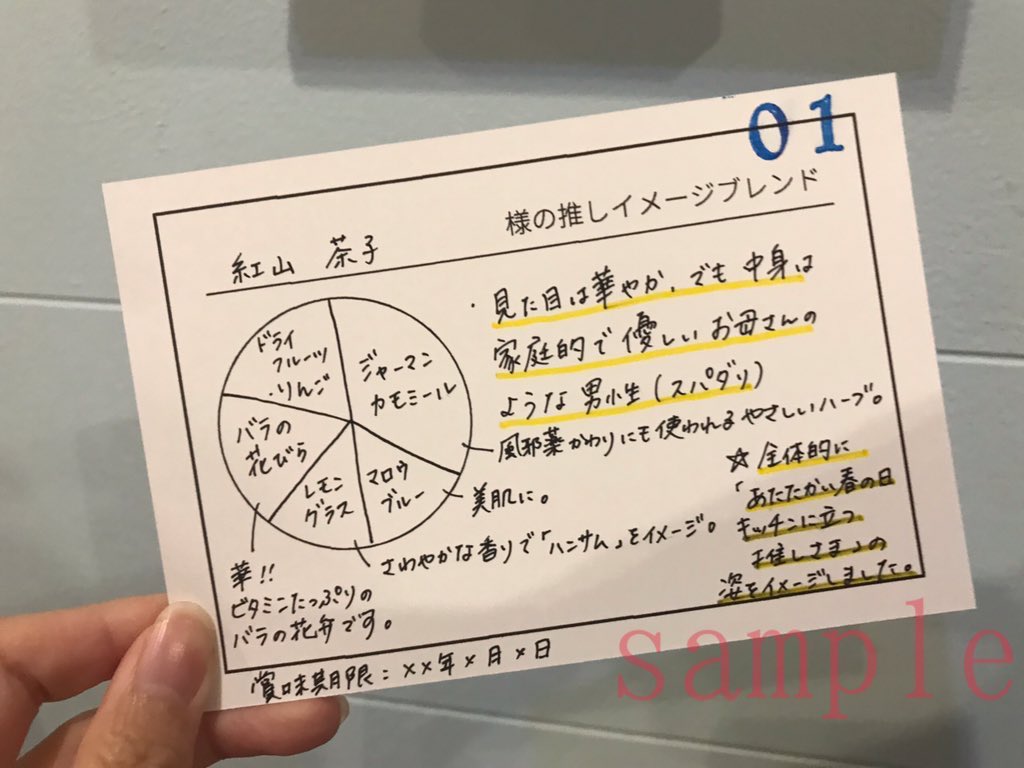 01
様の推しイメージブレンド
紅山 茶子
ドライ
フルーツ
・りんご
ジャーマン
カモミール
バラの
花びら
レモン
グラス
マロウ
ブルー
・見た目は華やか、でも中身は
家庭的で優しいお母さんの
ような男性(スパダリ)
風邪薬がわりにも使われるやさしいハーブ。
美肌に。
さわやかな香りで「ハンサム」をイメージ。
華!!
ビタミンたっぷりの
バラの花弁です。
☆全体的に
「あたたかい春の日
キッチンに立つ
推しさま」の
姿をイメージしました。
賞味期限:××年×月×日
sample